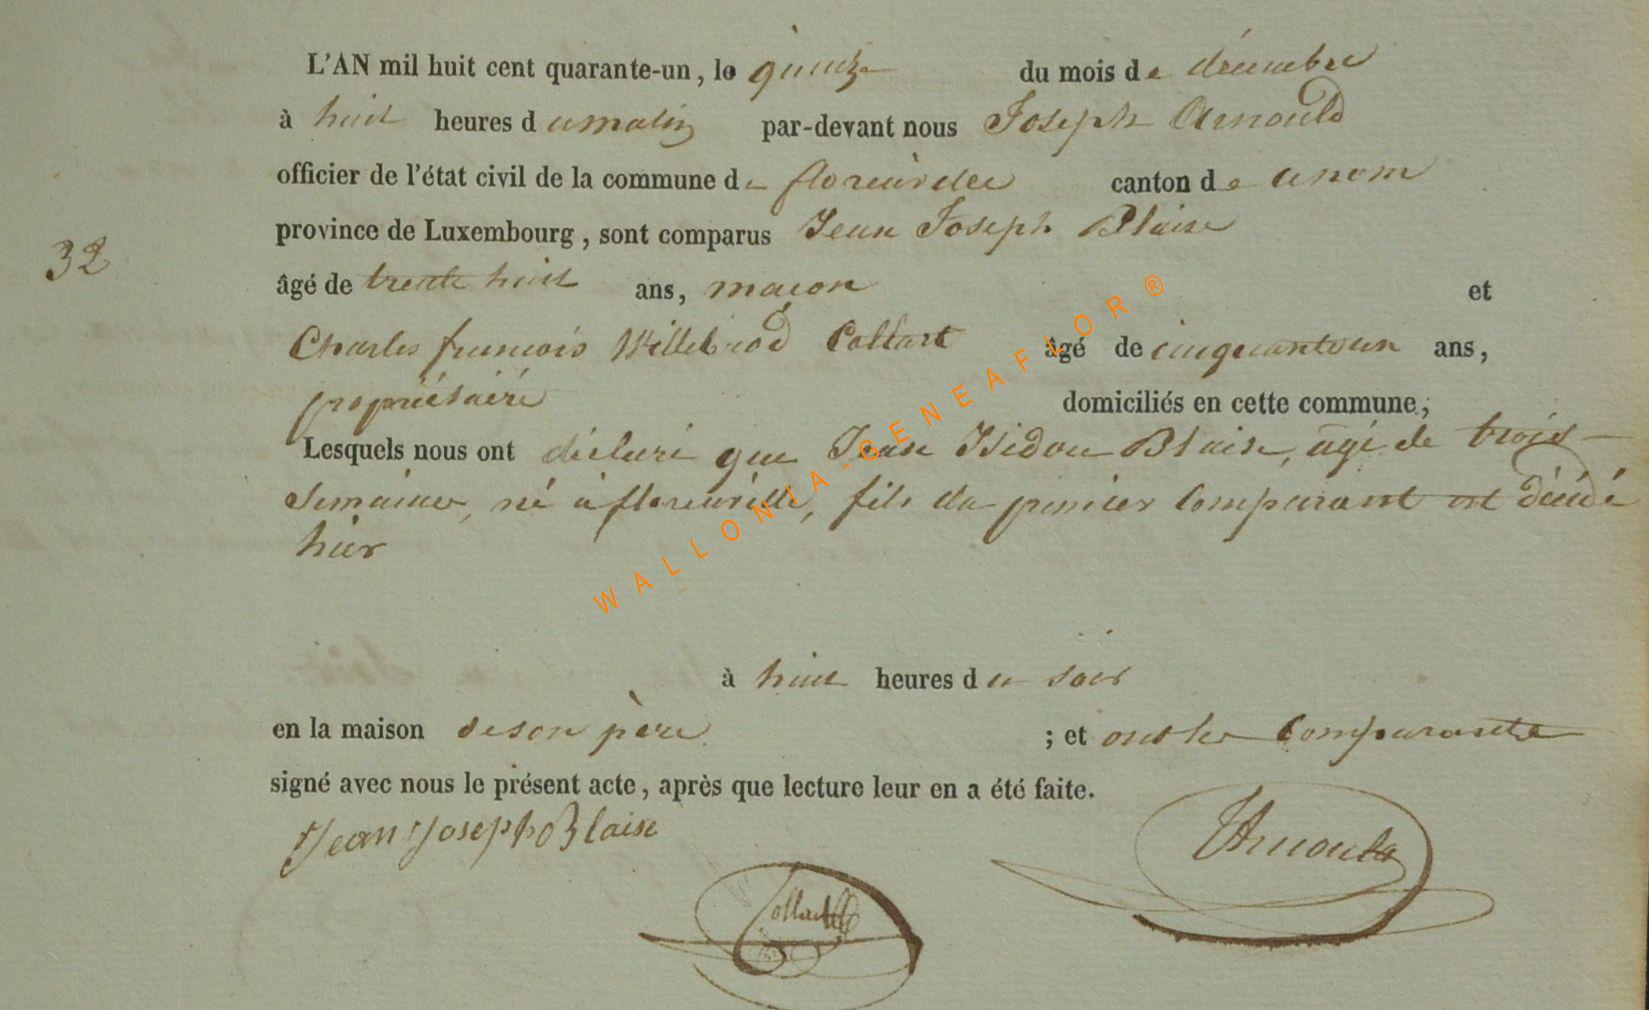 L'AN mil huit cent quarante-un, le quinze du mois de décembre
à huit heures du matin par-devant nous Joseph Arnould
officier de l'état civil de la commune de florenville canton de
province de Luxembourg, sont comparus Jean Joseph Blaise
32
âgé de trente huit ans, maçon et
Charles françois Willebrod Collart âgé de cinquanteun ans,
propriétaire domiciliés en cette commune;
Lesquels nous ont déclaré que Jean Isidore Blaise, âgé de trois
semaines, né à florenville, fils du premier Comparant est décédé
hier
à huit heures du soir
en la maison de son père ; et ont les Comparants
signé avec nous le présent acte, après que lecture leur en a été faite.
Jean Joseph Blaise
JArnould
Collart
WALLONIA-GENEAFLOR ®